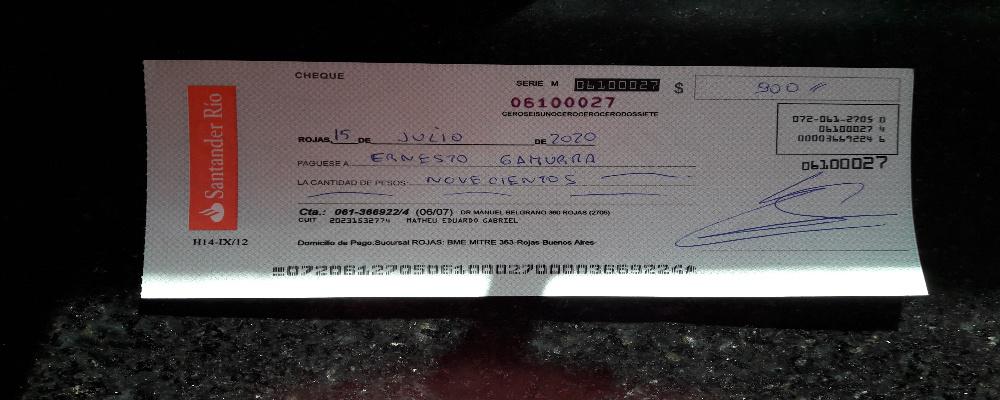 CHEQUE
SERIE M 06100027 $ 900 //
06100027
CEROSEISUNOCEROCEROCERODOSSIETE
072-061-2705 0
06100027 4
00003669224 6
06100027
ROJAS, 15 DE JULIO DE 2020
PAGUESE A ERNESTO GAMURRA
LA CANTIDAD DE PESOS: NOVECIENTOS
Cta.: 061-366922/4 (06/07) DR MANUEL BELGRANO 360 ROJAS (2705)
CUIT 20231532774 MATHEU EDUARDO GABRIEL
Domicilio de Pago:Sucursal ROJAS: BME MITRE 363-Rojas-Buenos Aires
Santander Río
H14-IX/12